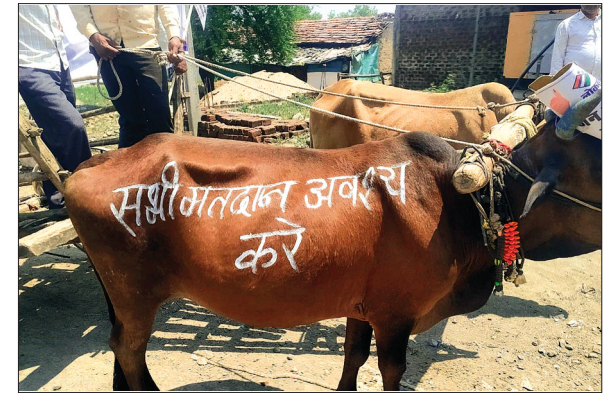 सभी मतदान अवश्य
करे